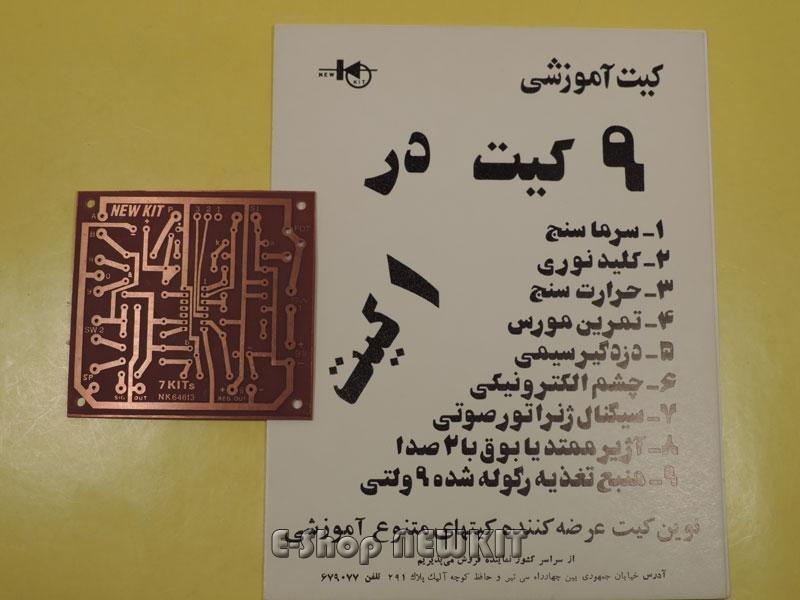 کیت آموزشی
NEW KIT
۹ کیت در
۱ کیت
۱ـ سرما سنج
۲ـ کلید نوری
۳ـ حرارت سنج
۴ـ تمرین مورس
۵ـ دزدگیر سیمی
۶ـ چشم الکترونیکی
۷ـ سیگنال ژنراتور صوتی
۸ـ آژیر ممتد یا بوق با ۲ صدا
۹ـ منبع تغذیه رگوله شده ۹ ولتی
نوین کیت عرضه کننده کیتهای متنوع آموزشی
از سراسر کشور نماینده فروش می‌پذیریم
آدرس خیابان جمهوری بین چهارراه سی تیر و حافظ کوچه آلیک پلاک ۲۹۱ تلفن ۶۷۹۰۷۷
NEW KIT P 3 2 1 S1
A
B
POT
SW 2
SP
7 KITs
SIG OUT NK64613 REG OUT
E-Shop NEWKIT